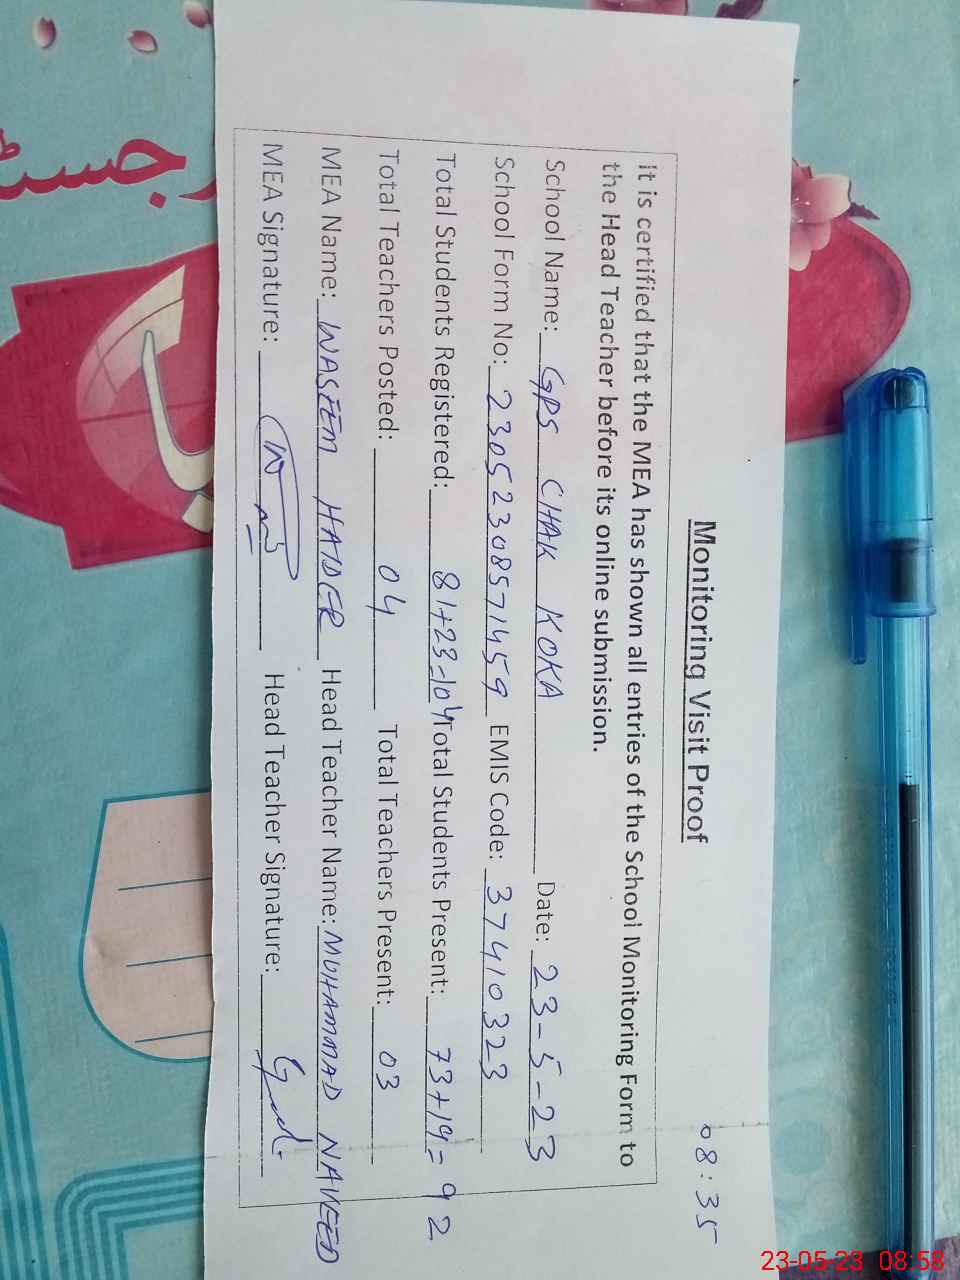 08:35
Monitoring Visit Proof
It is certified that the MEA has shown all entries of the School Monitoring Form to
the Head Teacher before its online submission.
School Name: GPS CHAK KOKA Date: 23-5-23
School Form No: 23052308571459 EMIS Code: 37410323
Total Students Registered: 81+23-104 Total Students Present: 73+19=92
Total Teachers Posted: 04 Total Teachers Present: 03
MEA Name: WASEEM HAIDER Head Teacher Name: MUHAMMAD NAVEED
MEA Signature: Head Teacher Signature:
23-05-23 08:58